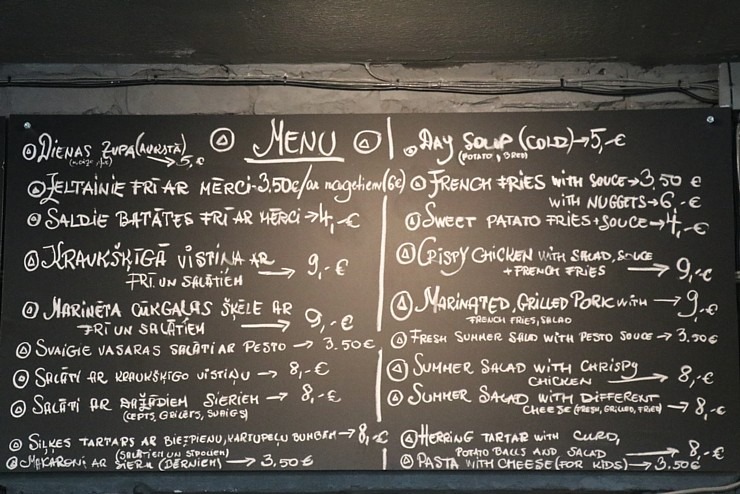 MENU
DIENAS ZUPA (AUKSTĀ) → 5,- €
ZELTAINIE FRĪ AR MĒRCI - 3,50€/ar nagetiem (6€)
SALDIE BATĀTES FRĪ AR MĒRCI → 4,- €
KRAUKŠĶĪGĀ VISTIŅA AR
FRĪ UN SALĀTIEM → 9,- €
MARINĒTA CŪKGAĻAS ŠĶĒLE AR
FRĪ UN SALĀTIEM → 9,- €
SVAIGIE VASARAS SALĀTI AR PESTO → 3.50€
SALĀTI AR KRAUKŠĶĪGO VISTIŅU → 8,- €
SALĀTI AR DAŽĀDIEM SIERIEM → 8,- €
(CEPTS, GRILĒTS, SVAIGS)
SIĻĶES TARTARS AR BIEZPIENU, KARTUPEĻU BUMBĀM → 8,- €
(SALĀTIEM UN SĪPOLIEM)
MAKARONI AR SIERU (BĒRNIEM) → 3,50€
DAY SOUP (COLD) → 5,- €
FRENCH FRIES WITH SOUCE → 3,50 €
WITH NUGGETS → 6,- €
SWEET PATATO FRIES + SOUCE → 4,- €
CRISPY CHICKEN WITH SALAD, SOUCE
+ FRENCH FRIES → 9,- €
MARINATED, GRILLED PORK WITH → 9,- €
FRENCH FRIES, SALAD
FRESH SUMMER SALAD WITH PESTO SOUCE → 3.50€
SUMMER SALAD WITH CHRISPY
CHICKEN → 8,- €
SUMMER SALAD WITH DIFFERENT
CHEESE (FRESH, GRILLED, FRIED) → 8,- €
HERRING TARTAR WITH CURD,
POTATO BALLS AND SALAD → 8,- €
PASTA WITH CHEESE (FOR KIDS) → 3,50€